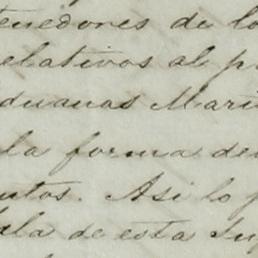 tenedores de lo
relativos al p
duanas Mari
la forma de
utos. Asi lo p
ala de esta Su